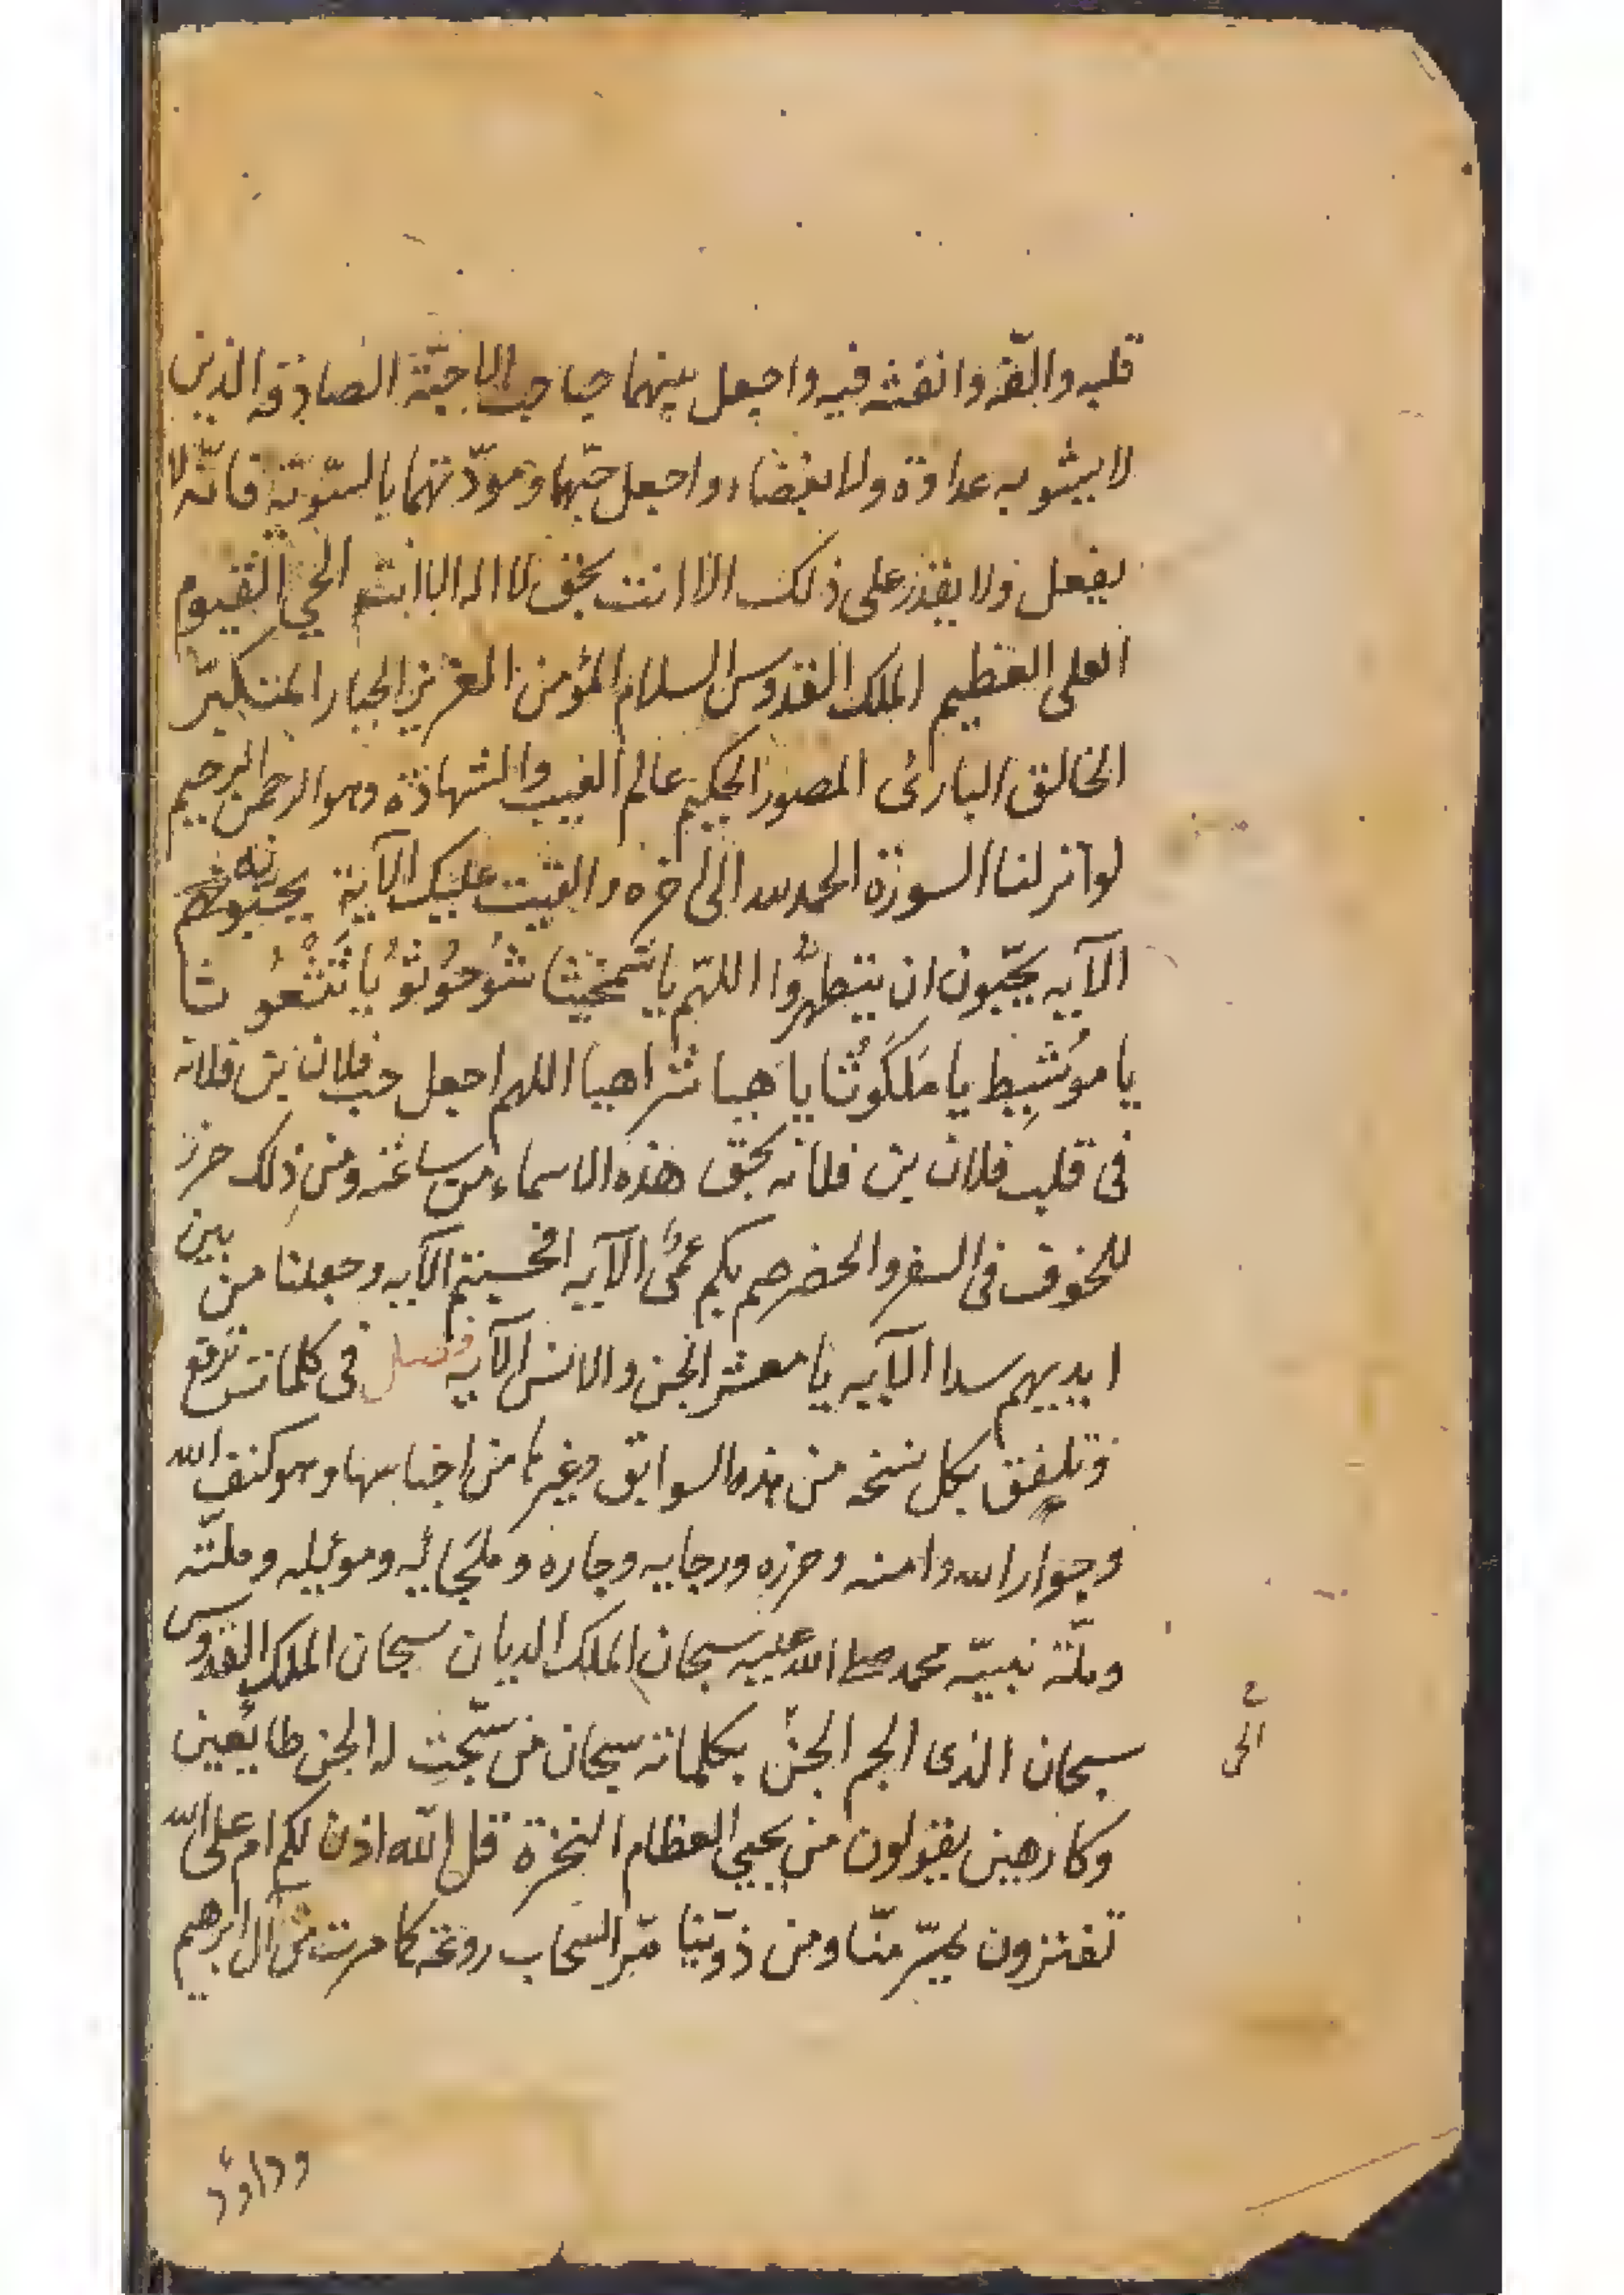 قلبه والّفه وانفثه فيه واجعل بينهما حبا حب الاحبّة الصادقه الذين
لا يشوبه عداوة ولا بغضاء واجعل حبّهما ومودّتهما بالسّويّة فانّه لا
يفعل ولا يقدر على ذلك الا انت بحق لا اله الا انت الحي القيوم
العلى العظيم الملك القدوس السلام المؤمن العزيز الجبار المتكبّر
الخالق البارئ المصور الحكيم عالم الغيب والشهادة وهو الرحمن الرحيم
لو انزلنا السورة الحمد لله الى اخره والقيت عليك الآية يحبّونه
الآيه يحبّون ان يتطهرّوا اللهّم يا شمخيثا شوحوثو يا ثثعو ثا
يا موشيط يا ملكوثا يا هيا شراهيا اللهم اجعل حب فلان بن فلانه
فى قلب فلان بن فلانه بحق هذه الاسماء من ساعته ومن ذلك حرز
للخوف فى السفر والحضر صم بكم عمىٌ الآيه افحسبتم الآيه وجعلنا من بين
ايديهم سدا الآيه يا معشر الجن والانس الآيه فصل فى كلمات ترقع
وتلفق بكل نسخه من هذه السوابق وغيرها من اجناسها وهو كنف الله
وجوار الله وامنه وحرزه ورجايه وجاره وملجائه وموئيله وملّته
وملّة نبيّه محمد صلى الله عليه سبحان الملك الديان سبحان الملك القدوس
سبحان الذى الجم الجنّ بكلماته سبحان من سبّحت له الجن طايعين
وكارهين يقولون من يحيي العظام النخرة قل الله اذن لكم ام على الله
تفترون يمرّ منّا ومن ذويّنا مرّ السحاب روغه كما مرت من آل ابرهيم
وداود
الى